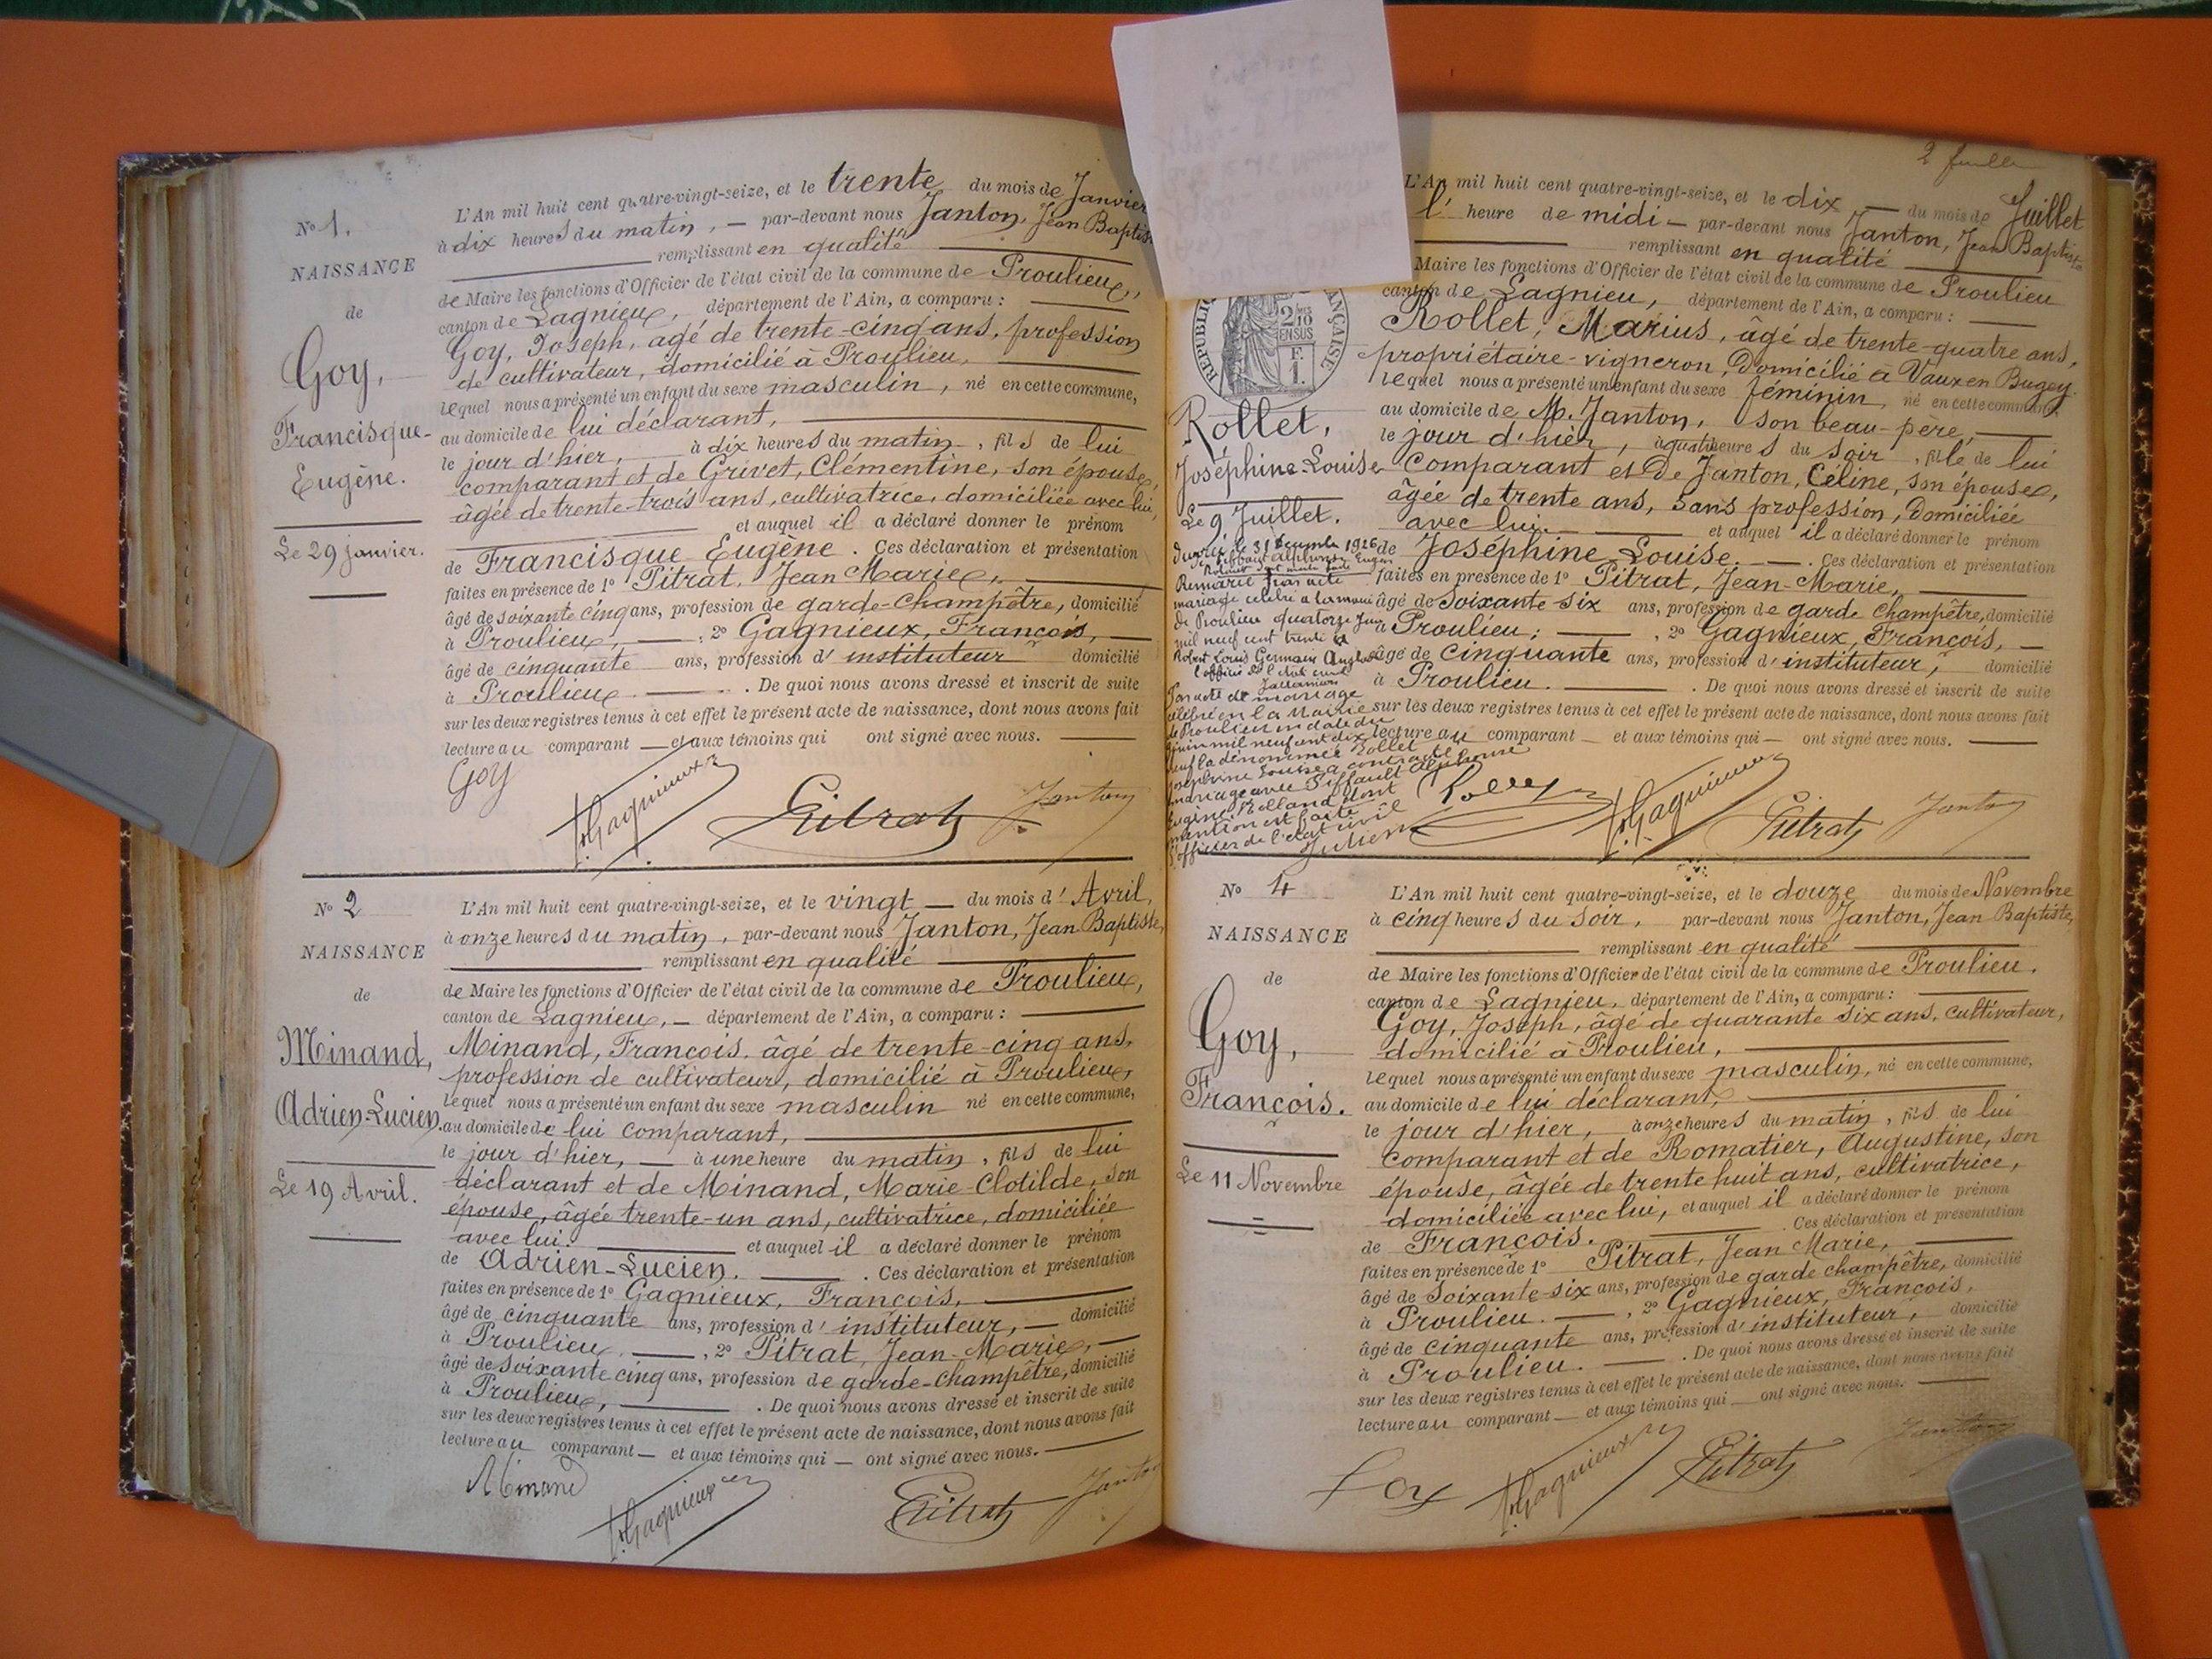 No 1.
NAISSANCE
de
Goy,
Francisque-
Eugène.
Le 29 janvier.
L'An mil huit cent quatre-vingt-seize, et le trente du mois de Janvier
à dix heures du matin, — par-devant nous Janton, Jean Baptis
remplissant en qualité
de Maire les fonctions d'Officier de l'état civil de la commune de Proulieu,
canton de Lagnieu, département de l'Ain, a comparu :
Goy, Joseph, agé de trente-cinq ans, profession
de cultivateur, domicilié à Proulieu,
lequel nous a présenté un enfant du sexe masculin, né en cette commune,
au domicile de lui déclarant,
le jour d'hier, à dix heures du matin, fils de lui
comparant et de Grivet, Clémentine, son épouse,
âgée de trente-trois ans, cultivatrice, domiciliée avec lui,
et auquel il a déclaré donner le prénom
de Francisque Eugène. Ces déclaration et présentation
faites en présence de 1° Pitrat, Jean Marie,
âgé de soixante cinq ans, profession de garde-champêtre, domicilié
à Proulieu, — , 2° Gagnieux, François, —
âgé de cinquante ans, profession d'instituteur domicilié
à Proulieu — . De quoi nous avons dressé et inscrit de suite
sur les deux registres tenus à cet effet le présent acte de naissance, dont nous avons fait
lecture au comparant — et aux témoins qui ont signé avec nous. —
Goy
Gagnieux
Pitrat
Janton
No 2
NAISSANCE
de
Minand,
Adrien-Lucien.
Le 19 Avril.
L'An mil huit cent quatre-vingt-seize, et le vingt — du mois d'Avril,
à onze heures du matin, par-devant nous Janton, Jean Baptiste,
remplissant en qualité
de Maire les fonctions d'Officier de l'état civil de la commune de Proulieu,
canton de Lagnieu, — département de l'Ain, a comparu :
Minand, François, âgé de trente-cinq ans,
profession de cultivateur, domicilié à Proulieu,
lequel nous a présenté un enfant du sexe masculin né en cette commune,
au domicile de lui comparant,
le jour d'hier, — à une heure du matin, fils de lui
déclarant et de Minand, Marie-Clotilde, son
épouse, âgée trente-un ans, cultivatrice, domiciliée
avec lui. et auquel il a déclaré donner le prénom
de Adrien-Lucien. — . Ces déclaration et présentation
faites en présence de 1° Gagnieux, François,
âgé de cinquante ans, profession d'instituteur, — domicilié
à Proulieu, — , 2° Pitrat, Jean-Marie, —
âgé de soixante cinq ans, profession de garde-champêtre, domicilié
à Proulieu, — . De quoi nous avons dressé et inscrit de suite
sur les deux registres tenus à cet effet le présent acte de naissance, dont nous avons fait
lecture au comparant — et aux témoins qui — ont signé avec nous. —
Minand
Gagnieux
Pitrat
Janton
REPUBLI
ÇAISE
2/10
EN SUS
F.
1.
Rollet,
Joséphine-Louise
Le 9 Juillet.
31 Décembre 1926
mariage célébré à la mairie
de Proulieu quatorze
mil neuf cent trente
Robert Louis Germain
l'officier de l'état civil
Par acte de mariage
célébré en la Mairie
de Proulieu en date du
juin mil neuf cent dix
neuf la dénommée Rollet
Joséphine Louise a contracté
mariage avec Alphonse
Eugène Rolland dont
mention est faite
l'officier de l'état civil
L'An mil huit cent quatre-vingt-seize, et le dix — du mois de Juillet
l' heure de midi — par-devant nous Janton, Jean Baptiste
remplissant en qualité
Maire les fonctions d'Officier de l'état civil de la commune de Proulieu
canton de Lagnieu, département de l'Ain, a comparu :
Rollet, Marius, âgé de trente-quatre ans,
propriétaire-vigneron, Domicilié à Vaux en Bugey
lequel nous a présenté un enfant du sexe féminin, né en cette commune,
au domicile de M. Janton, son beau-père,
le jour d'hier, à quatre heures du soir, fille de lui
comparant et De Janton, Céline, son épouse,
âgée de trente ans, sans profession, Domiciliée
avec lui. — et auquel il a déclaré donner le prénom
de Joséphine Louise. — . Ces déclaration et présentation
faites en présence de 1° Pitrat, Jean-Marie,
âgé de Soixante six ans, profession de garde champêtre, domicilié
à Proulieu; — , 2° Gagnieux, François, —
âgé de cinquante ans, profession d'instituteur, domicilié
à Proulieu. — . De quoi nous avons dressé et inscrit de suite
sur les deux registres tenus à cet effet le présent acte de naissance, dont nous avons fait
lecture au comparant — et aux témoins qui — ont signé avec nous. —
Gagnieux
Pitrat
Janton
No 4
NAISSANCE
de
Goy,
François.
Le 11 Novembre
L'An mil huit cent quatre-vingt-seize, et le douze du mois de Novembre
à cinq heures du soir, par-devant nous Janton, Jean Baptiste,
remplissant en qualité
de Maire les fonctions d'Officier de l'état civil de la commune de Proulieu.
canton de Lagnieu, département de l'Ain, a comparu :
Goy, Joseph, âgé de quarante six ans, cultivateur,
domicilié à Proulieu,
lequel nous a présenté un enfant du sexe masculin, né en cette commune,
au domicile de lui déclarant,
le jour d'hier, à onze heures du matin, fils de lui
comparant et de Romatier, Augustine, son
épouse, âgée de trente huit ans, cultivatrice,
domiciliée avec lui, et auquel il a déclaré donner le prénom
de François. — . Ces déclaration et présentation
faites en présence de 1° Pitrat, Jean Marie,
âgé de Soixante-six ans, profession de garde champêtre, domicilié
à Proulieu. — , 2° Gagnieux, François,
âgé de cinquante ans, profession d'instituteur, domicilié
à Proulieu. — . De quoi nous avons dressé et inscrit de suite
sur les deux registres tenus à cet effet le présent acte de naissance, dont nous avons fait
lecture au comparant — et aux témoins qui — ont signé avec nous. —
Goy
Gagnieux
Pitrat
Janton